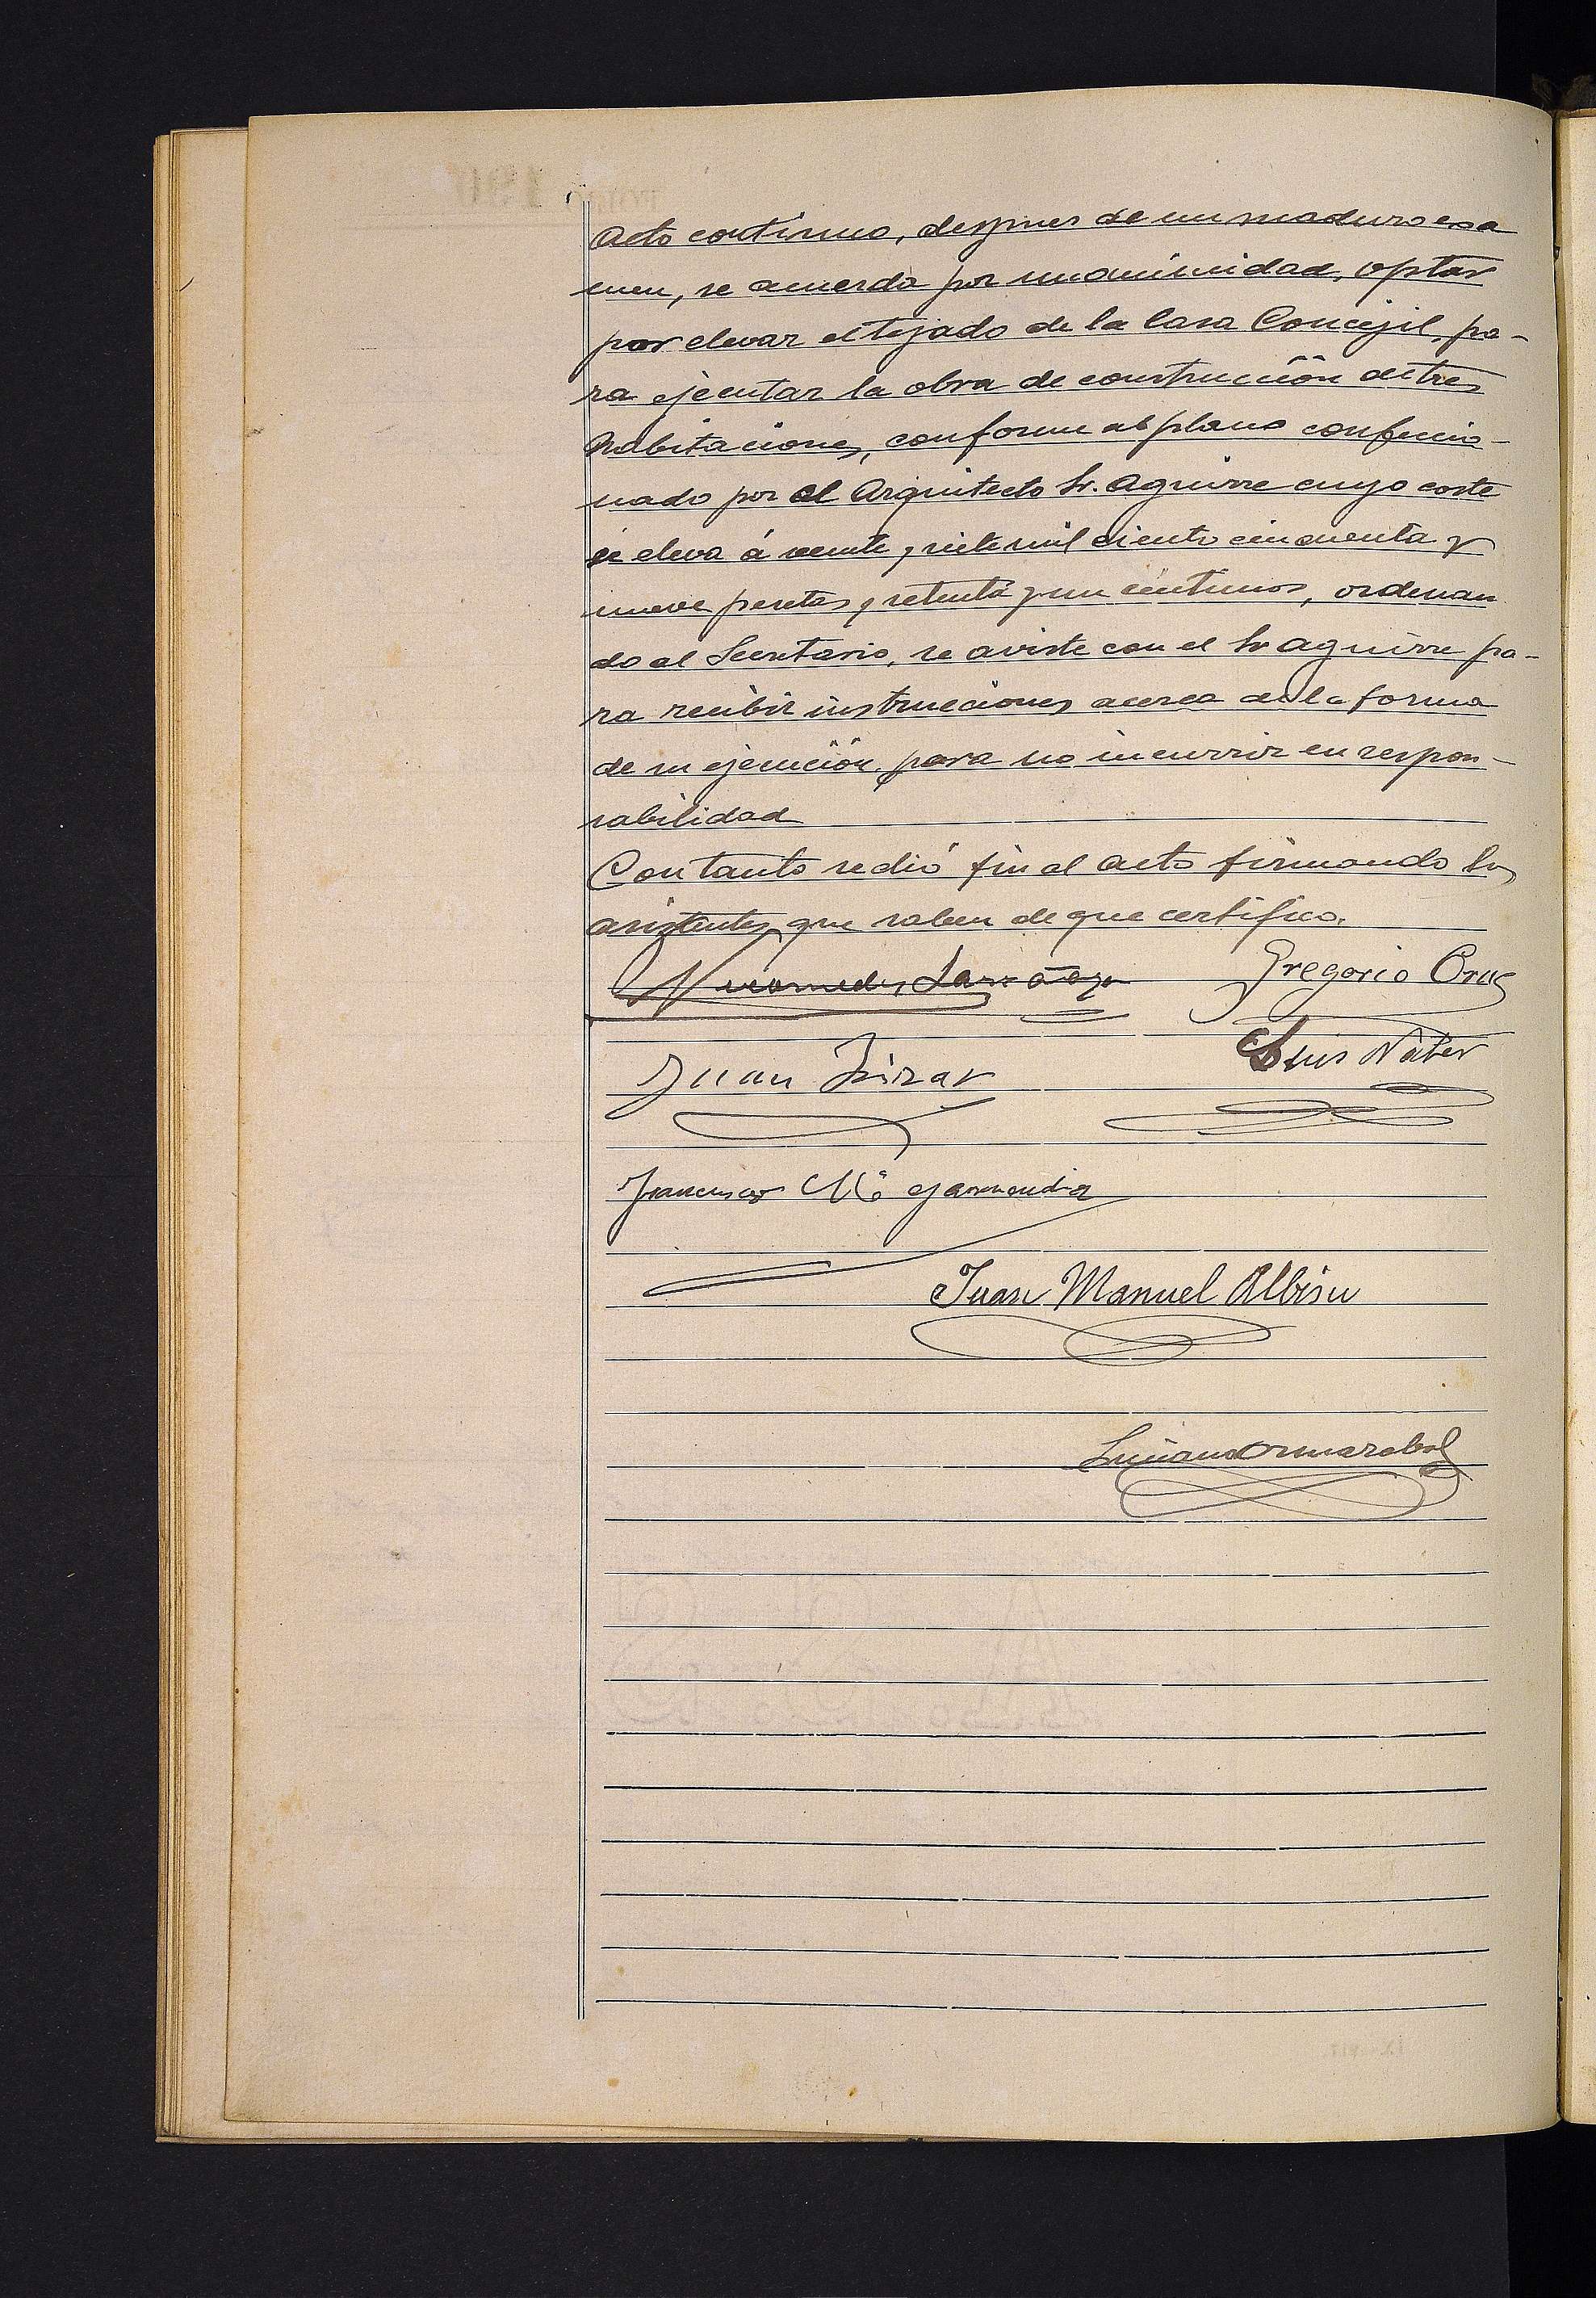 Acto continuo, despues de un maduro exa
men, se acuerda por unanimidad, optar
por elevar el tejado de la Casa Concejil, pa-
ra ejecutar la obra de construcción de tres
habitaciones, conforme al plano confeccio-
nado por el Arquitecto Sr. Aguirre cuyo coste
se eleva á veinte y siete mil ciento cincuenta y
nueve pesetas y setenta y un centimos, ordenan
do al Secretario, se aviste con el Sr Aguirre pa-
ra recibir instrucciones acerca de la forma
de su ejecución, para no incurrir en respon-
sabilidad
Con tanto se dió fin al acto firmando los
asistentes que saben de que certifico.
Nicomedes Larrañaga Gregorio Oruç
Juan Luis
Francisco Mª Garmendia
Juan Manuel Albisu
Luciano